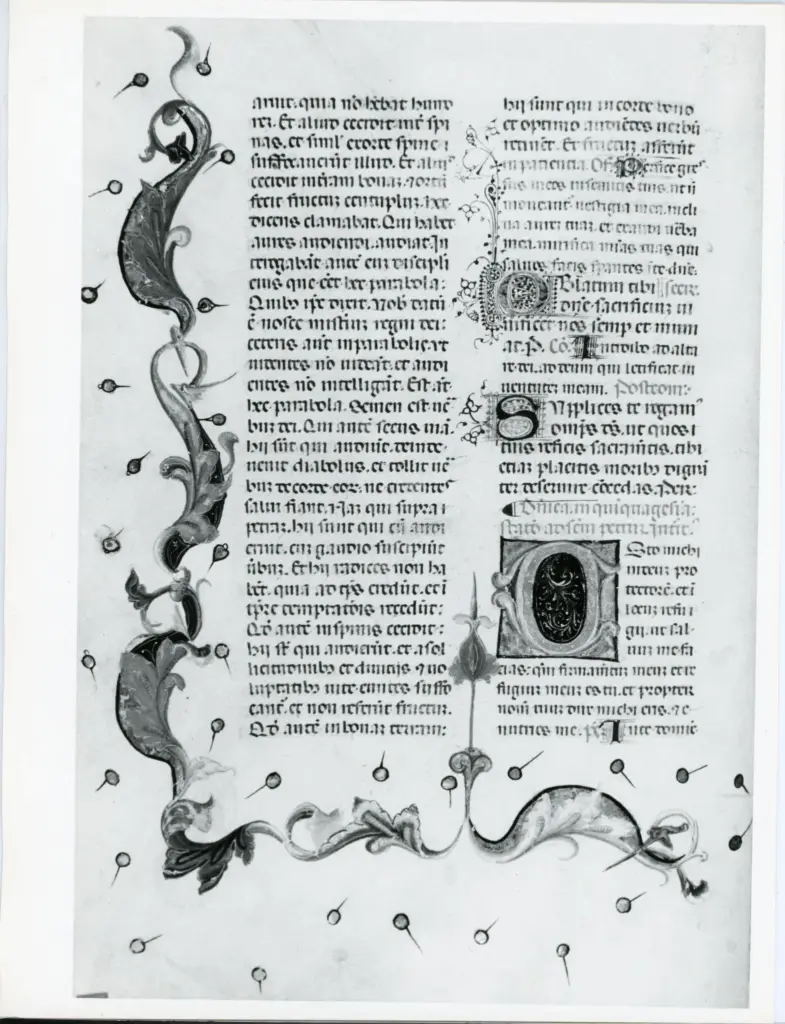 aruit. quia nō hēbat humo
rez. Et aliud cecidit int̄ spi
nas. et simĺ exorte spine
suffocauerūt illud. Et aliud
cecidit in t̄ram bonaz. ⁊ orta
fecit fructū centuplū. hec
dicens clamabat. Qui habet
aures audiendi. audiat. In
terogabāt autē eū discipli
eius que eēt hec parabola:
Quibꝫ ip̄e dixit. Vob̄ datū
ē nosce misteriū regni dei:
ceteris aūt in parabolis. vt
uidentes nō uideāt. et audi
entes nō intelligāt. Est āt
hec parabola. Semen est uē
buz dei. Qui autē secus uiā.
hij sūt qui audiūt. deinde
uenit diabolus. et tollit uē
buz de corde eoꝝ. ne credentes
salui fiant. Naz qui supra
petraz. hij sunt qui cū audi
erint. cuz gaudio suscipiūt
ūbuz. Et hij radices non ha
bēt. quia ad tp̄s credūt. et ī
tp̄re temptatōis recedūt:
Qđ autē in spinis cecidit:
hij sūt qui audierūt. et a sol
licitudinibꝫ et diuicijs ⁊ uo
luptatibꝫ uite euntes suffo
cant̄. et non referūt fructuz.
Qđ autē in bonaz terram:
hij sunt qui in corde bono
et optimo audiētes uerbū
retinēt. Et fructuz afferūt
in paciencia. Of. Perfice gres
sus meos in semitis tuis. ut ñ
moueant̄ uestigia mea. incli
na aurez tuaz. et exaudi uēba
mea. mirifica mīas tuas qui
saluos facis sperantes ī te dn̄e.
Oblatum tibi secr.
dn̄e sacrificiuz ui
uificet nos semp et muni
at. P. Cō. Introibo ad alta
re dei. ad deum qui letificat iu
uentutez meam. Postcom:
Supplices te rogam
omp̄s ds̄. ut quos
tuis reficis sacram̄tis. tibi
etiaz placitis moribꝫ digni
ter deseruire cōcedas. Per:
Dn̄ica in quiquagesia:
statō ad scm̄ petrū. Introit.
Esto michi
in deuz pro
tectorē. et ī
locuz refu
gij. ut sal
uuz me fa
cias: qm̄ firmam̄tuz meuz et re
fugiuz meuz es tu. et propter
nom̄ tuuz dux michi eris. ⁊ e
nutries me. p̄s In te domie